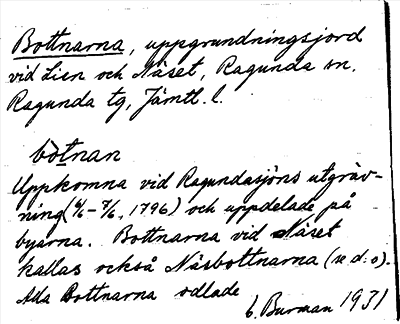 Bottnarna, uppgrundningsjord
vid Lien och Näset, Ragunda sn.
Ragunda tg, Jämtl. l.
bòtnan
Uppkomna vid Ragundasjöns utgräv-
ning (6/6 – 7/6, 1796) och uppdelade på
byarna. Bottnarna vid Näset
kallas också Näsbottnarna (se d. o).
Alla Bottnarna odlade
C. Burman 1931